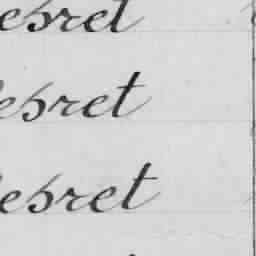 ebret
ebret
ebret